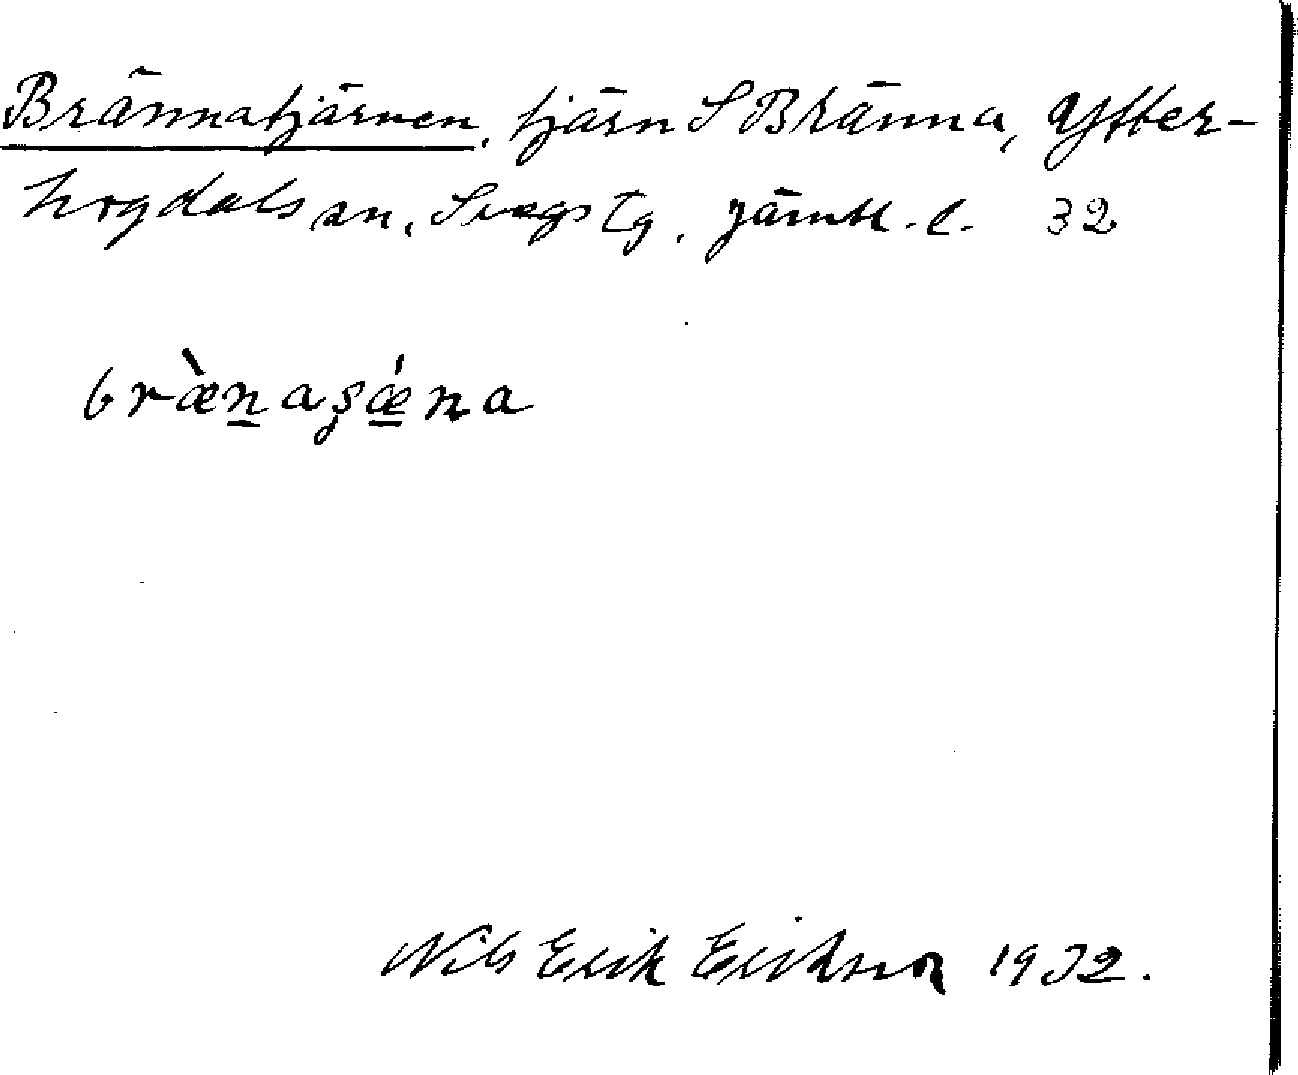 Brännatjärnen, tjärn S Bränna, Ytter-
hogdals sn, Svegs tg, Jämtl. l. 32
bræ̀n̲aʂǽ̲na
Nils Erik Erikson 1932.